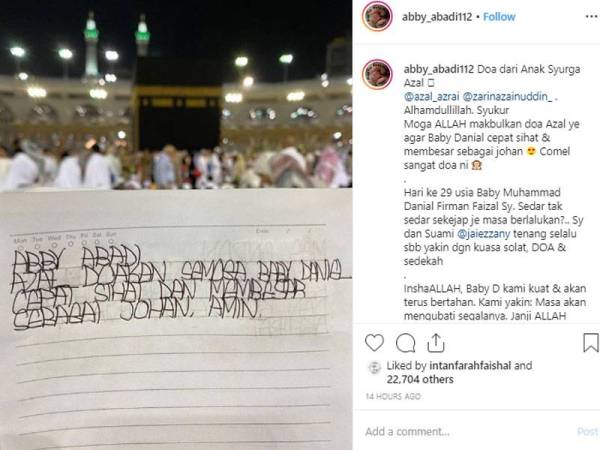 abby_abadi112 • Follow
abby_abadi112 Doa dari Anak Syurga
Azal
@azal_azrai @zarinazainuddin_ .
Alhamdullillah. Syukur
Moga ALLAH makbulkan doa Azal ye
agar Baby Danial cepat sihat &
membesar sebagai johan 😍 Comel
sangat doa ni 🙊
.
Hari ke 29 usia Baby Muhammad
Danial Firman Faizal Sy. Sedar tak
sedar sekejap je masa berlalukan?.. Sy
dan Suami @jaiezzany tenang selalu
sbb yakin dgn kuasa solat, DOA &
sedekah
.
InshaALLAH, Baby D kami kuat & akan
terus bertahan. Kami yakin: Masa akan
mengubati segalanya. Janji ALLAH
Liked by intanfarahfaishal and
22,704 others
14 HOURS AGO
Add a comment...
Post
Mon Tue Wed Thu Fri Sat Sun
Date
ABBY ABADI
AZAL DOAKAN SEMOGA BABY DANIEL
CEPAT SIHAT DAN MEMBESAR
SEBAGAI JOHAN. AMIN.